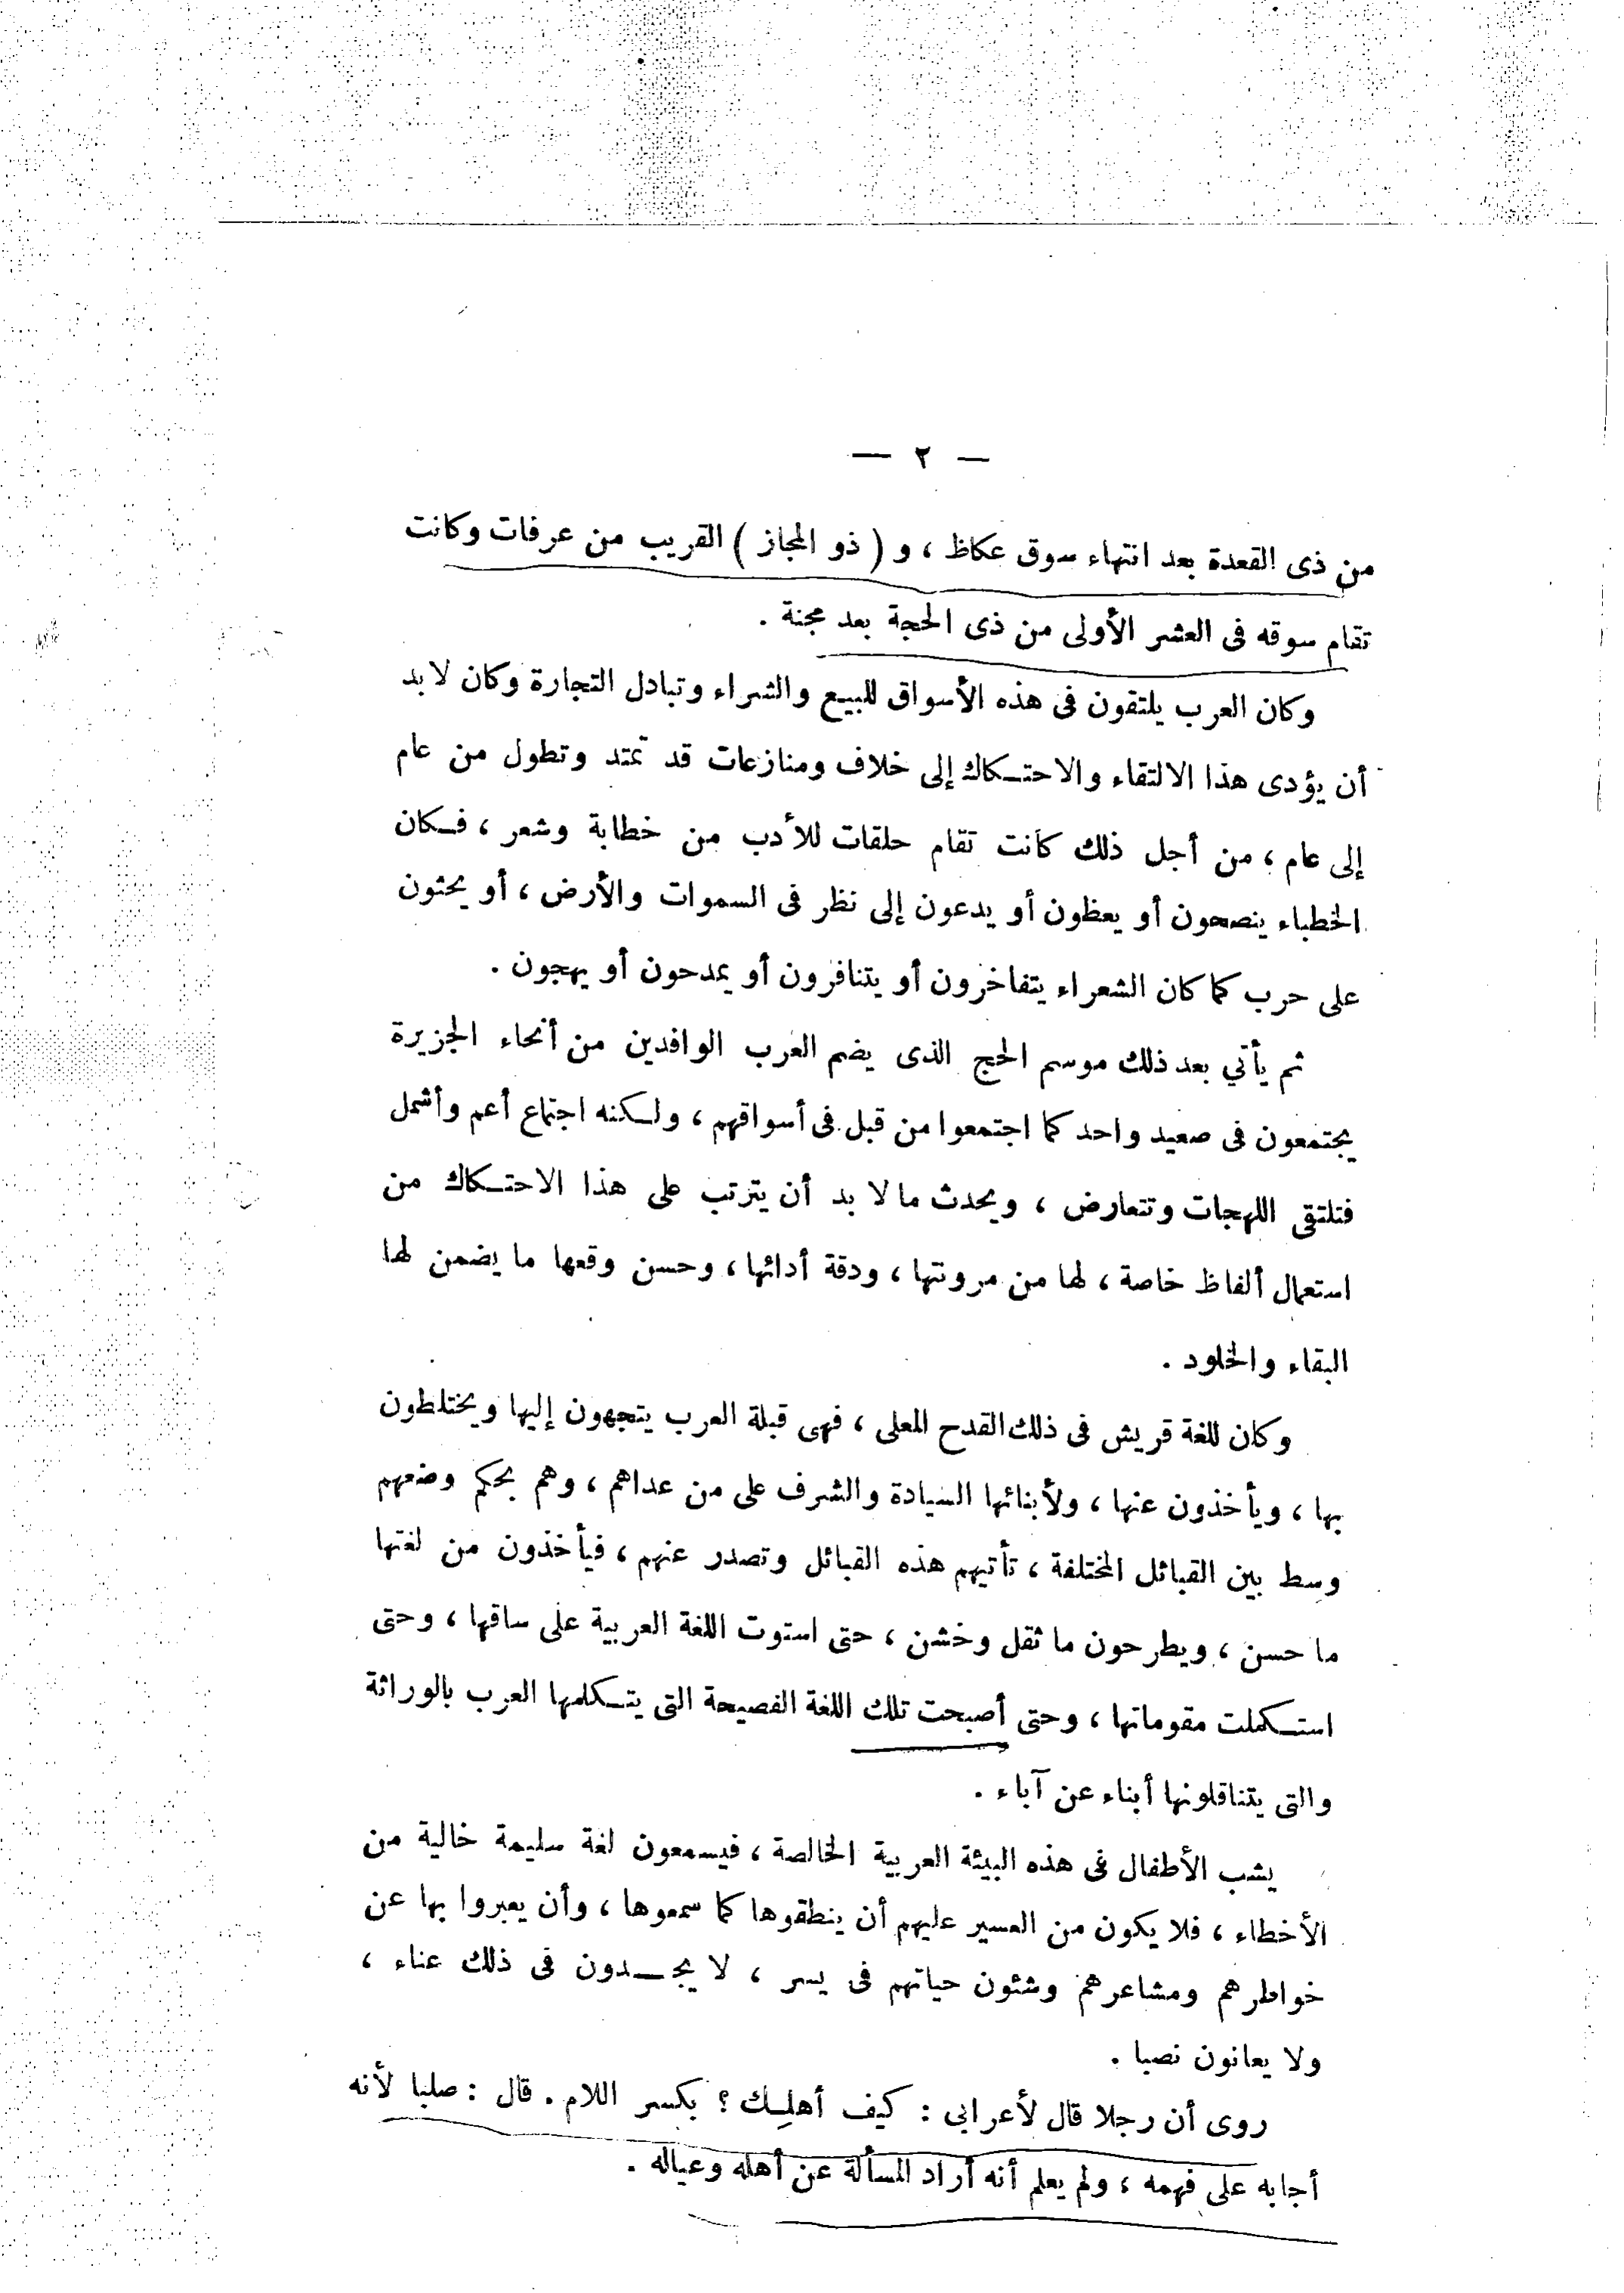 — ٢ —
من ذى القعدة بعد انتهاء سوق عكاظ ، و ( ذو المجاز ) القريب من عرفات وكانت
تقام سوقه فى العشر الأولى من ذى الحجة بعد مجنة .
وكان العرب يلتقون فى هذه الأسواق للبيع والشراء وتبادل التجارة وكان لا بد
أن يؤدى هذا الالتقاء والاحتكاك إلى خلاف ومنازعات قد تمتد وتطول من عام
إلى عام ، من أجل ذلك كانت تقام حلقات للأدب من خطابة وشعر ، فكان
الخطباء ينصحون أو يعظون أو يدعون إلى نظر فى السموات والأرض ، أو يحثون
على حرب كما كان الشعراء يتفاخرون أو يتنافرون أو يمدحون أو يهجون .
ثم يأتي بعد ذلك موسم الحج الذى يضم العرب الوافدين من أنحاء الجزيرة
يجتمعون فى صعيد واحد كما اجتمعوا من قبل فى أسواقهم ، ولكنه اجتماع أعم وأشمل
فتلتقى اللهجات وتتعارض ، ويحدث ما لا بد أن يترتب على هذا الاحتكاك من
استعمال ألفاظ خاصة ، لها من مرونتها ، ودقة أدائها ، وحسن وقعها ما يضمن لها
البقاء والخلود .
وكان للغة قريش فى ذلك القدح المعلى ، فهى قبلة العرب يتجهون إليها ويختلطون
بها ، ويأخذون عنها ، ولأبنائها السيادة والشرف على من عداهم ، وهم بحكم وضعهم
وسط بين القبائل المختلفة ، تأتيهم هذه القبائل وتصدر عنهم ، فيأخذون من لغتها
ما حسن ، ويطرحون ما ثقل وخشن ، حتى استوت اللغة العربية على ساقها ، وحتى
استكملت مقوماتها ، وحتى أصبحت تلك اللغة الفصيحة التى يتكلمها العرب بالوراثة
والتى يتناقلونها أبناء عن آباء .
يشب الأطفال فى هذه البيئة العربية الخالصة ، فيسمعون لغة سليمة خالية من
الأخطاء ، فلا يكون من العسير عليهم أن ينطقوها كما سمعوها ، وأن يعبروا بها عن
خواطرهم ومشاعرهم وشئون حياتهم فى يسر ، لا يجدون فى ذلك عناء ،
ولا يعانون نصبا .
روى أن رجلا قال لأعرابى : كيف أهلِك ؟ بكسر اللام . قال : صلبا لأنه
أجابه على فهمه ، ولم يعلم أنه أراد المسألة عن أهله وعياله .